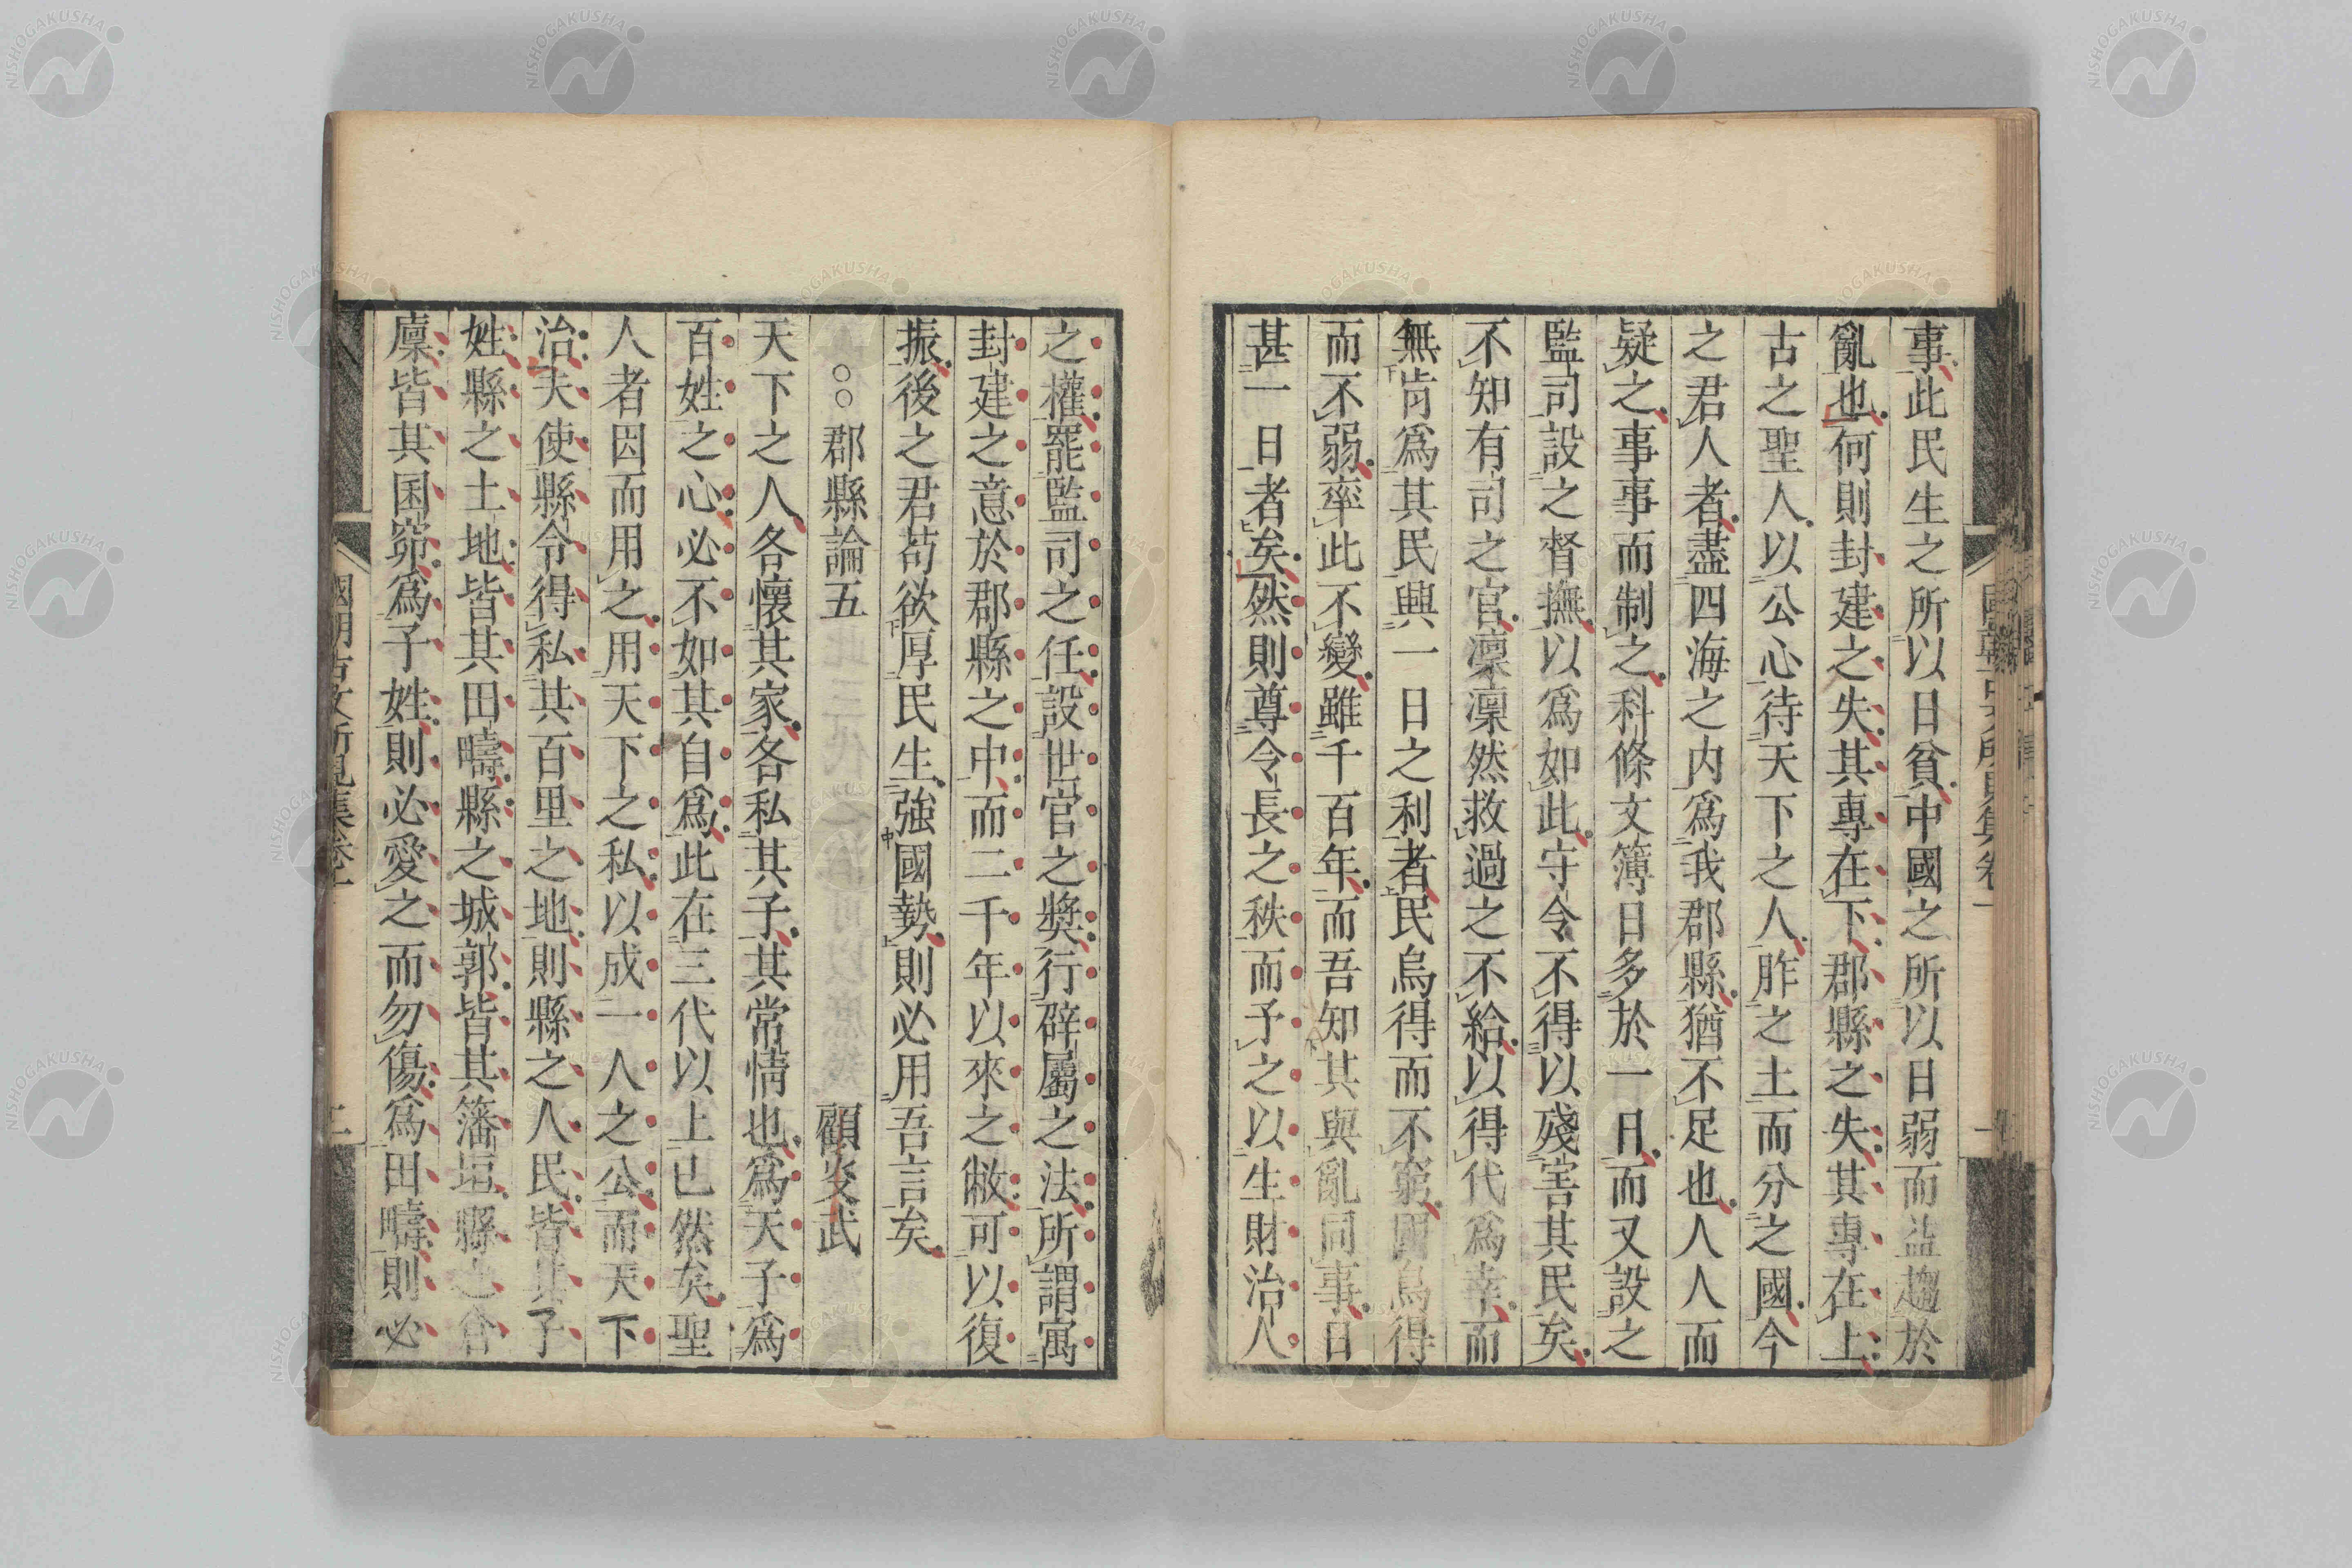 事此民生之所以日貧中國之所以日弱而益趨於
亂也何則封建之失其專在下郡縣之失其專在上
古之聖人以公心待天下之人胙之土而分之國今
之君人者盡四海之內爲我郡縣猶不足也人人而
疑之事事而制之科條文簿日多於一日而又設之
監司設之督撫以爲如此守令不得以殘害其民矣
不知有司之官凜凜然救過之不給以得代爲幸而
無肯爲其民興一日之利者民烏得而不窮國烏得
而不弱率此不變雖千百年而吾知其與亂同事日
甚一日者矣然則尊令長之秩而予之以生財治人
之權罷監司之任設世官之獎行辟屬之法所謂寓
封建之意於郡縣之中而二千年以來之敝可以復
振後之君苟欲厚民生強國勢則必用吾言矣
○○郡縣論五 顧炎武
天下之人各懷其家各私其子其常情也爲天子爲
百姓之心必不如其自爲此在三代以上已然矣聖
人者因而用之用天下之私以成一人之公而天下
治夫使縣令得私其百里之地則縣之人民皆其子
姓縣之土地皆其田疇縣之城郭皆其藩垣縣之倉
廩皆其囷窌爲子姓則必愛之而勿傷爲田疇則必
國朝古文所見集卷一 二
NISHOGAKUSHA